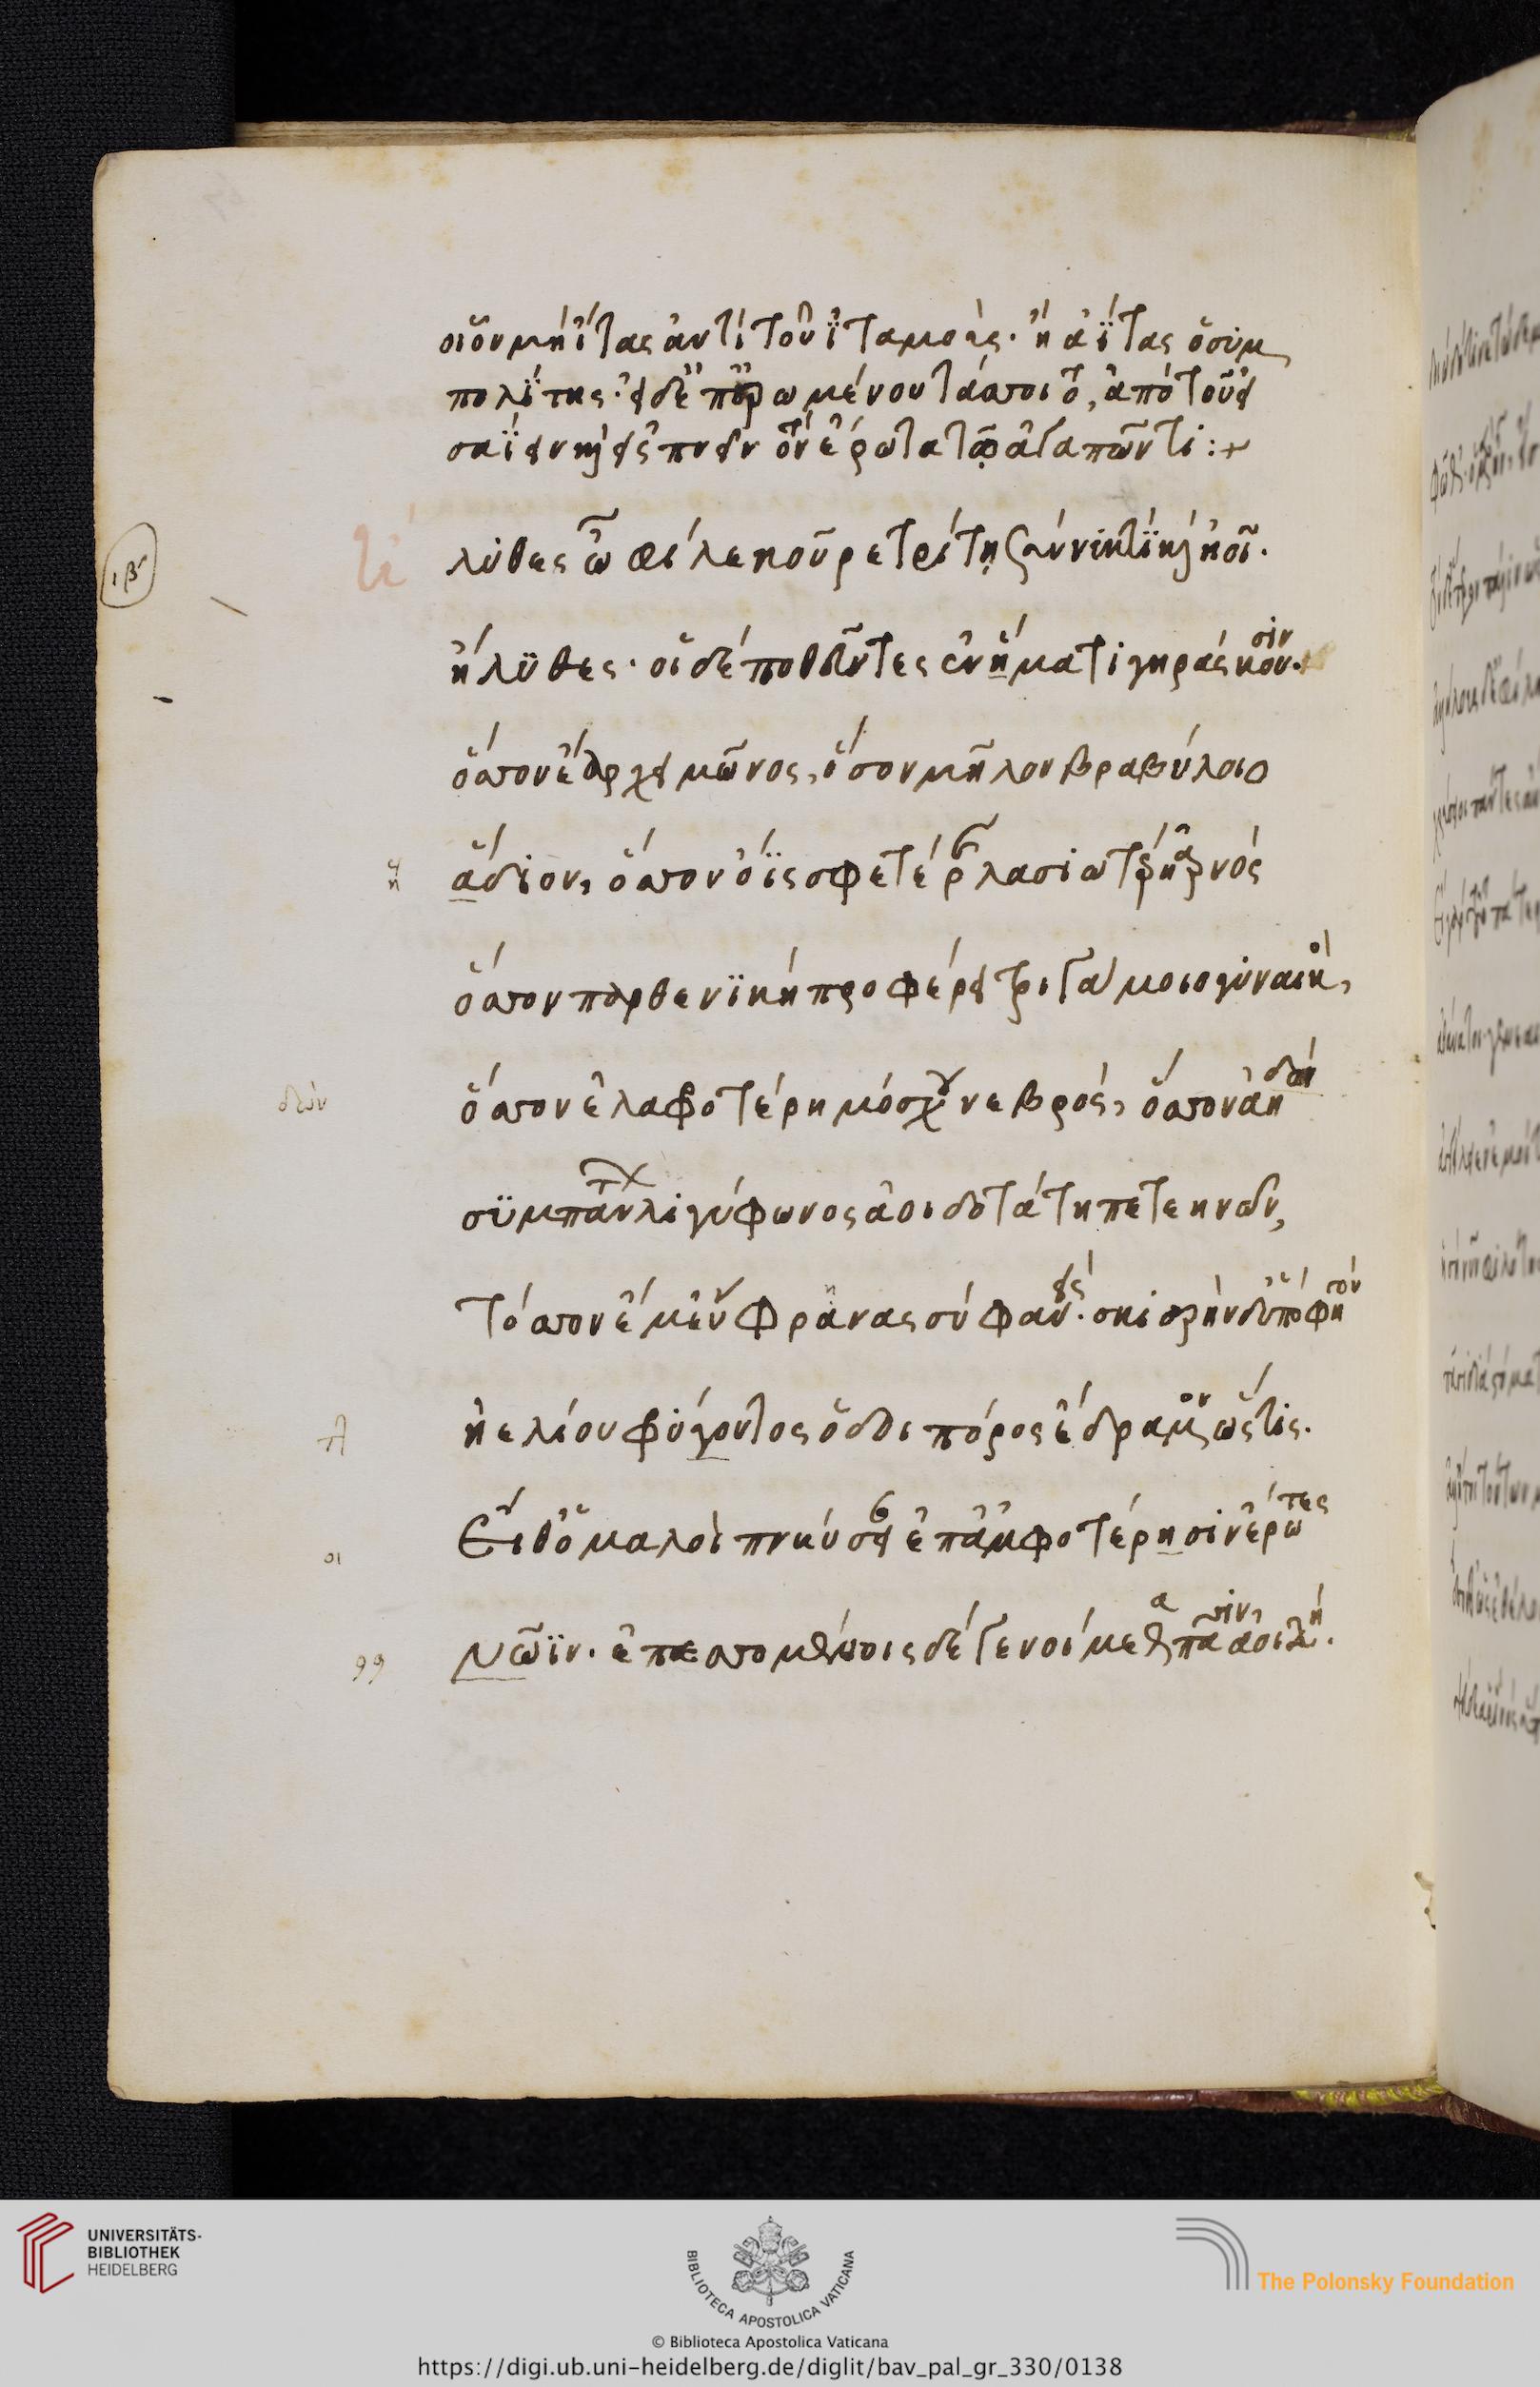 οἱονμὴ ἴτας ἀντὶ τοῦ ἰταμοὺς. ἢ ἀΐτας ὁ συμ
πολίτης.
τὸν ἔρωτα τῷ ἀγαπῶντι :+
ιβ
λυθες ὦ φίλε κοῦρε τρίτῃ σὺν νυκτὶ καὶ ἠοῖ.
ἤλυθες. οἱ δὲ ποθεῦντες ἐν ἤματι γηράσκουσιν.
ὅσσον ἔαρ χειμῶνος, ὅσον μῆλον βραβύλοιο
ει
η
ἅδιον, ὅσσον ὄϊς σφετέρης λασιωτέρη ἀρνός
ὅσσον παρθενικὴ προφέρει τριγάμοιο γυναικός,
δών
ὅσσον ἐλαφροτέρη μόσχου νεβρός, ὅσσον ἀηδών
συμπάντων λιγύφωνος ἀοιδοτάτη πετεηνῶν,
τόσσον ἔμ' εὔφρανας σὺ φανείς. σκιαρὴν δ' ὑπὸ φηγὸν
λ
ἠελίου φρύγοντος ὁδοιπόρος ἔδραμον ὥς τις.
οι
Εἴθ' ὁμαλοὶ πνεύσειαν ἐπ' ἀμφοτέρῃσιν ἔρωτες
νῶϊν. ἐπεσσομένοις δὲ γενοίμεθα πᾶσιν ἀοιδή.
UNIVERSITÄTS-
BIBLIOTHEK
HEIDELBERG
BIBLIOTECA APOSTOLICA VATICANA
The Polonsky Foundation
© Biblioteca Apostolica Vaticana
https://digi.ub.uni-heidelberg.de/diglit/bav_pal_gr_330/0138